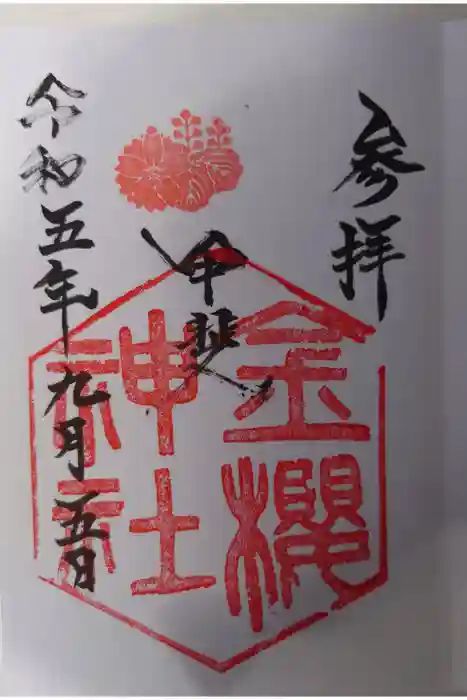 参拝
甲斐
金櫻
神社
令和五年九月五日